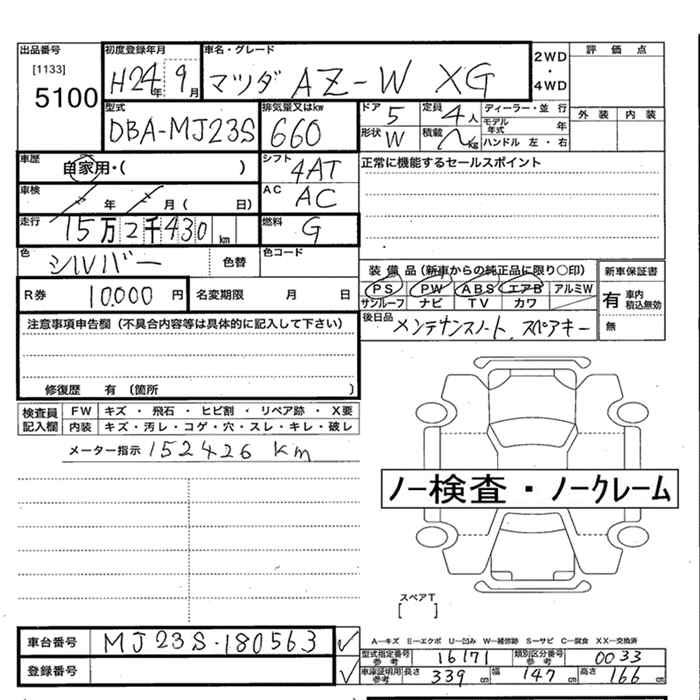 出品番号 初度登録年月 車名・グレード 2WD・4WD 評価点
[1133]
5100 H24年 9月 マツダ AZ-W XG
型式 排気量又はkw ドア 5 定員 4人 ディーラー・並行 外装 内装
DBA-MJ23S 660 形状 W 積載 kg モデル年式 年
ハンドル 左・右
車歴 自家用・( ) シフト 4AT 正常に機能するセールスポイント
車検 年 月 ( 日) AC AC
走行 15万2千430km 燃料 G
色 シルバー 色替 色コード
装備品 (新車からの純正品に限り○印) 新車保証書
R券 10,000円 名変期限 月 日 PS PW ABS エアB アルミW 有 車内積込無効
サンルーフ ナビ TV カワ 無
注意事項申告欄 (不具合内容等は具体的に記入して下さい) 後日品 メンテナンスノート、スペアキー
修復歴 有 (箇所 )
検査員記入欄 FW キズ・飛石・ヒビ割・リペア跡・X要
内装 キズ・汚レ・コゲ・穴・スレ・キレ・破レ
メーター指示 152426 km
ノー検査・ノークレーム
スペアT
[ ]
車台番号 MJ23S-180563
A―キズ E―エクボ U―凹み W―補修跡 S―サビ C―腐食 XX―交換済
型式指定番号 参考 16171 類別区分番号 参考 0033
登録番号 車庫証明用 参考 長さ 339cm 幅 147cm 高さ 166cm